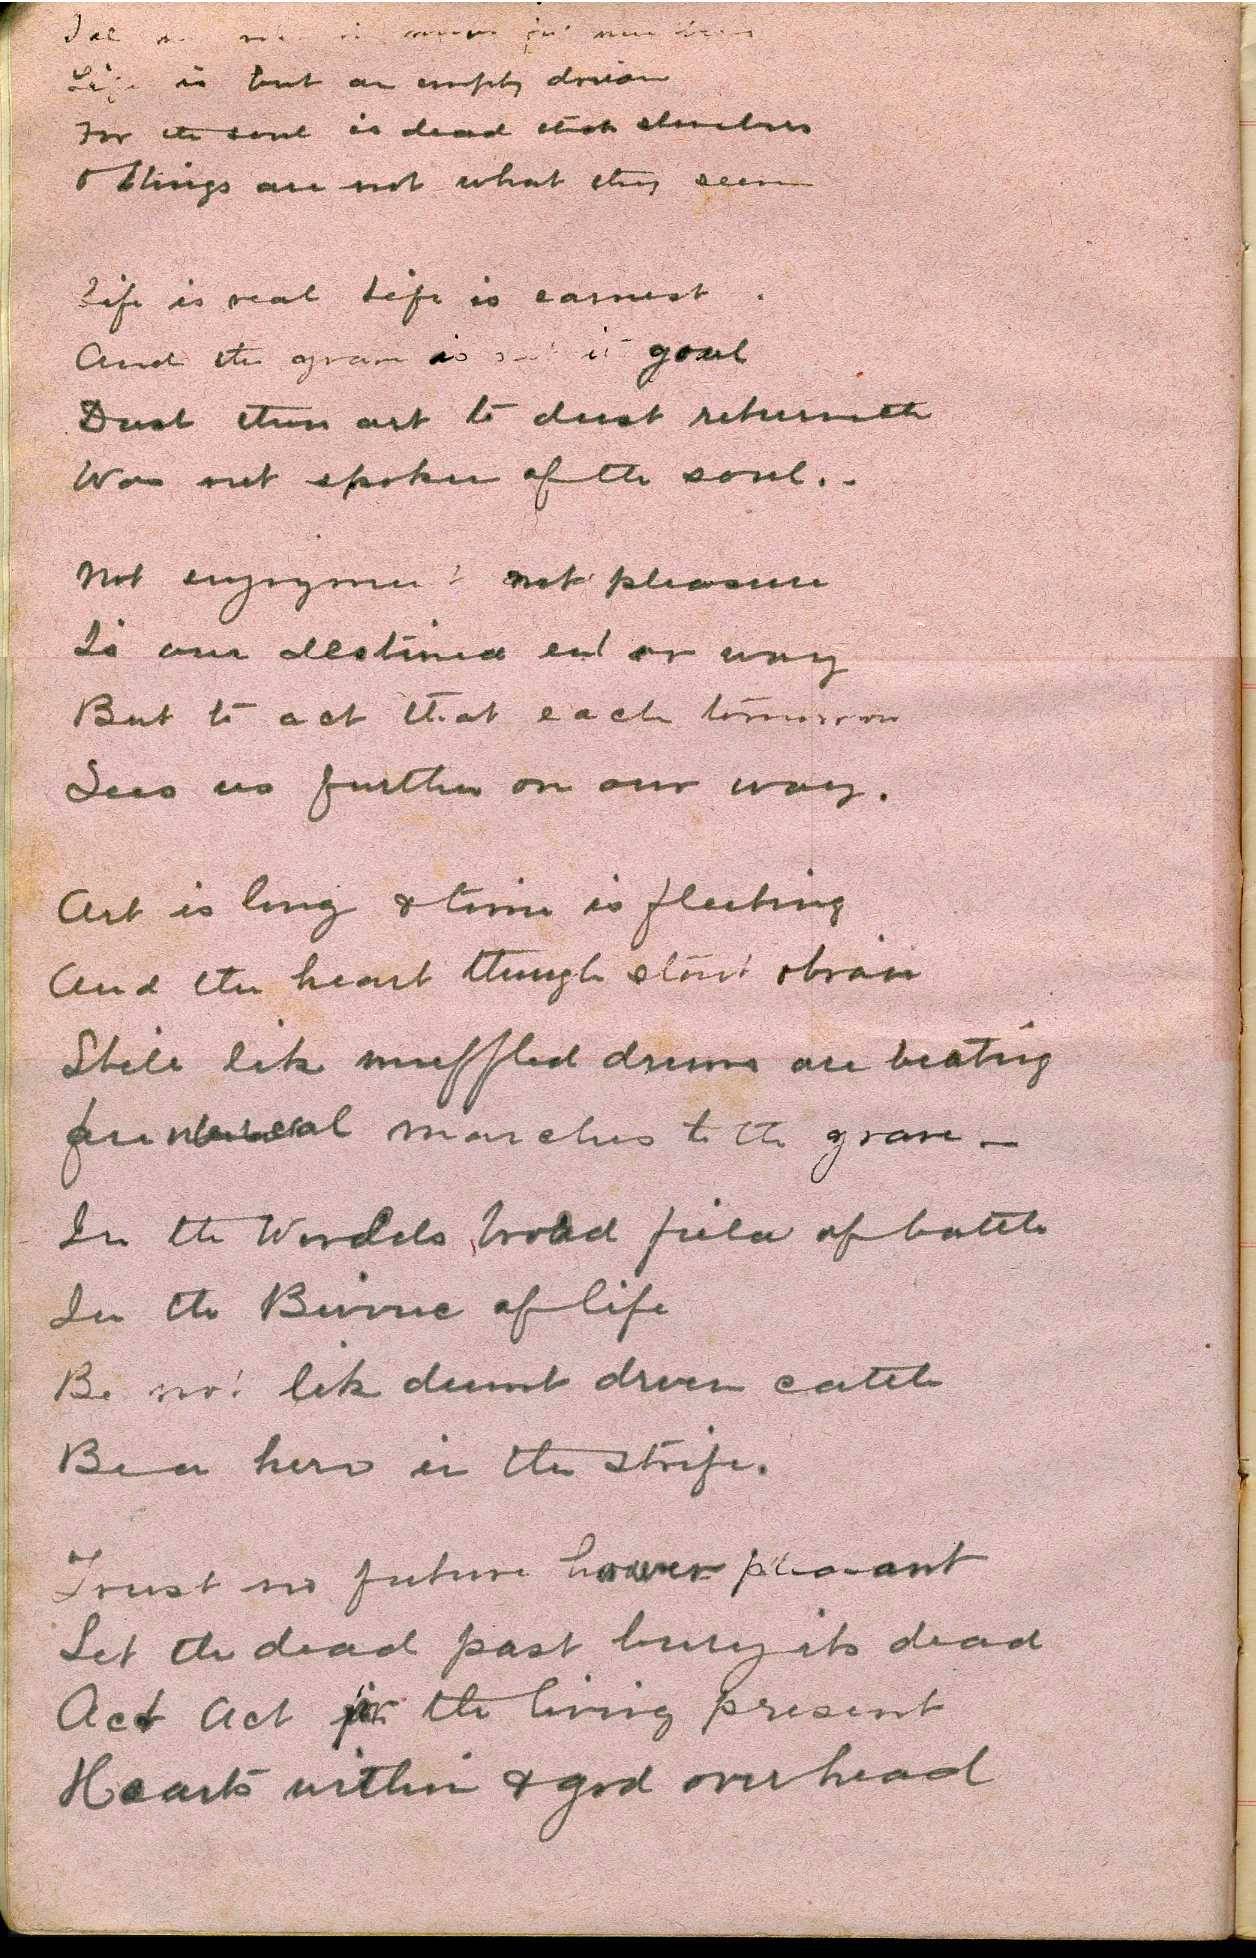 Tell me not in mournful numbers
Life is but an empty dream
For the soul is dead that slumbers
& things are not what they seem
Life is real Life is earnest.
And the grave is not it goal
Dust thou art to dust returneth
Was not spoken of the soul..
Not enjoyment not pleasure
Is our destined end or way
But to act that each tomorrow
Sees us further on our way.
Art is long & time is fleeting
And the heart though stout & brave
Still like muffled drums are beating
funeral marches to the grave —
In the Worlds broad field of battle
In the Bivouc of life
Be not like dumb driven cattle
Be a hero in the strife.
Trust no future hower pleasant
Let the dead past bury its dead
Act Act in the living present
Hearts within & god overhead